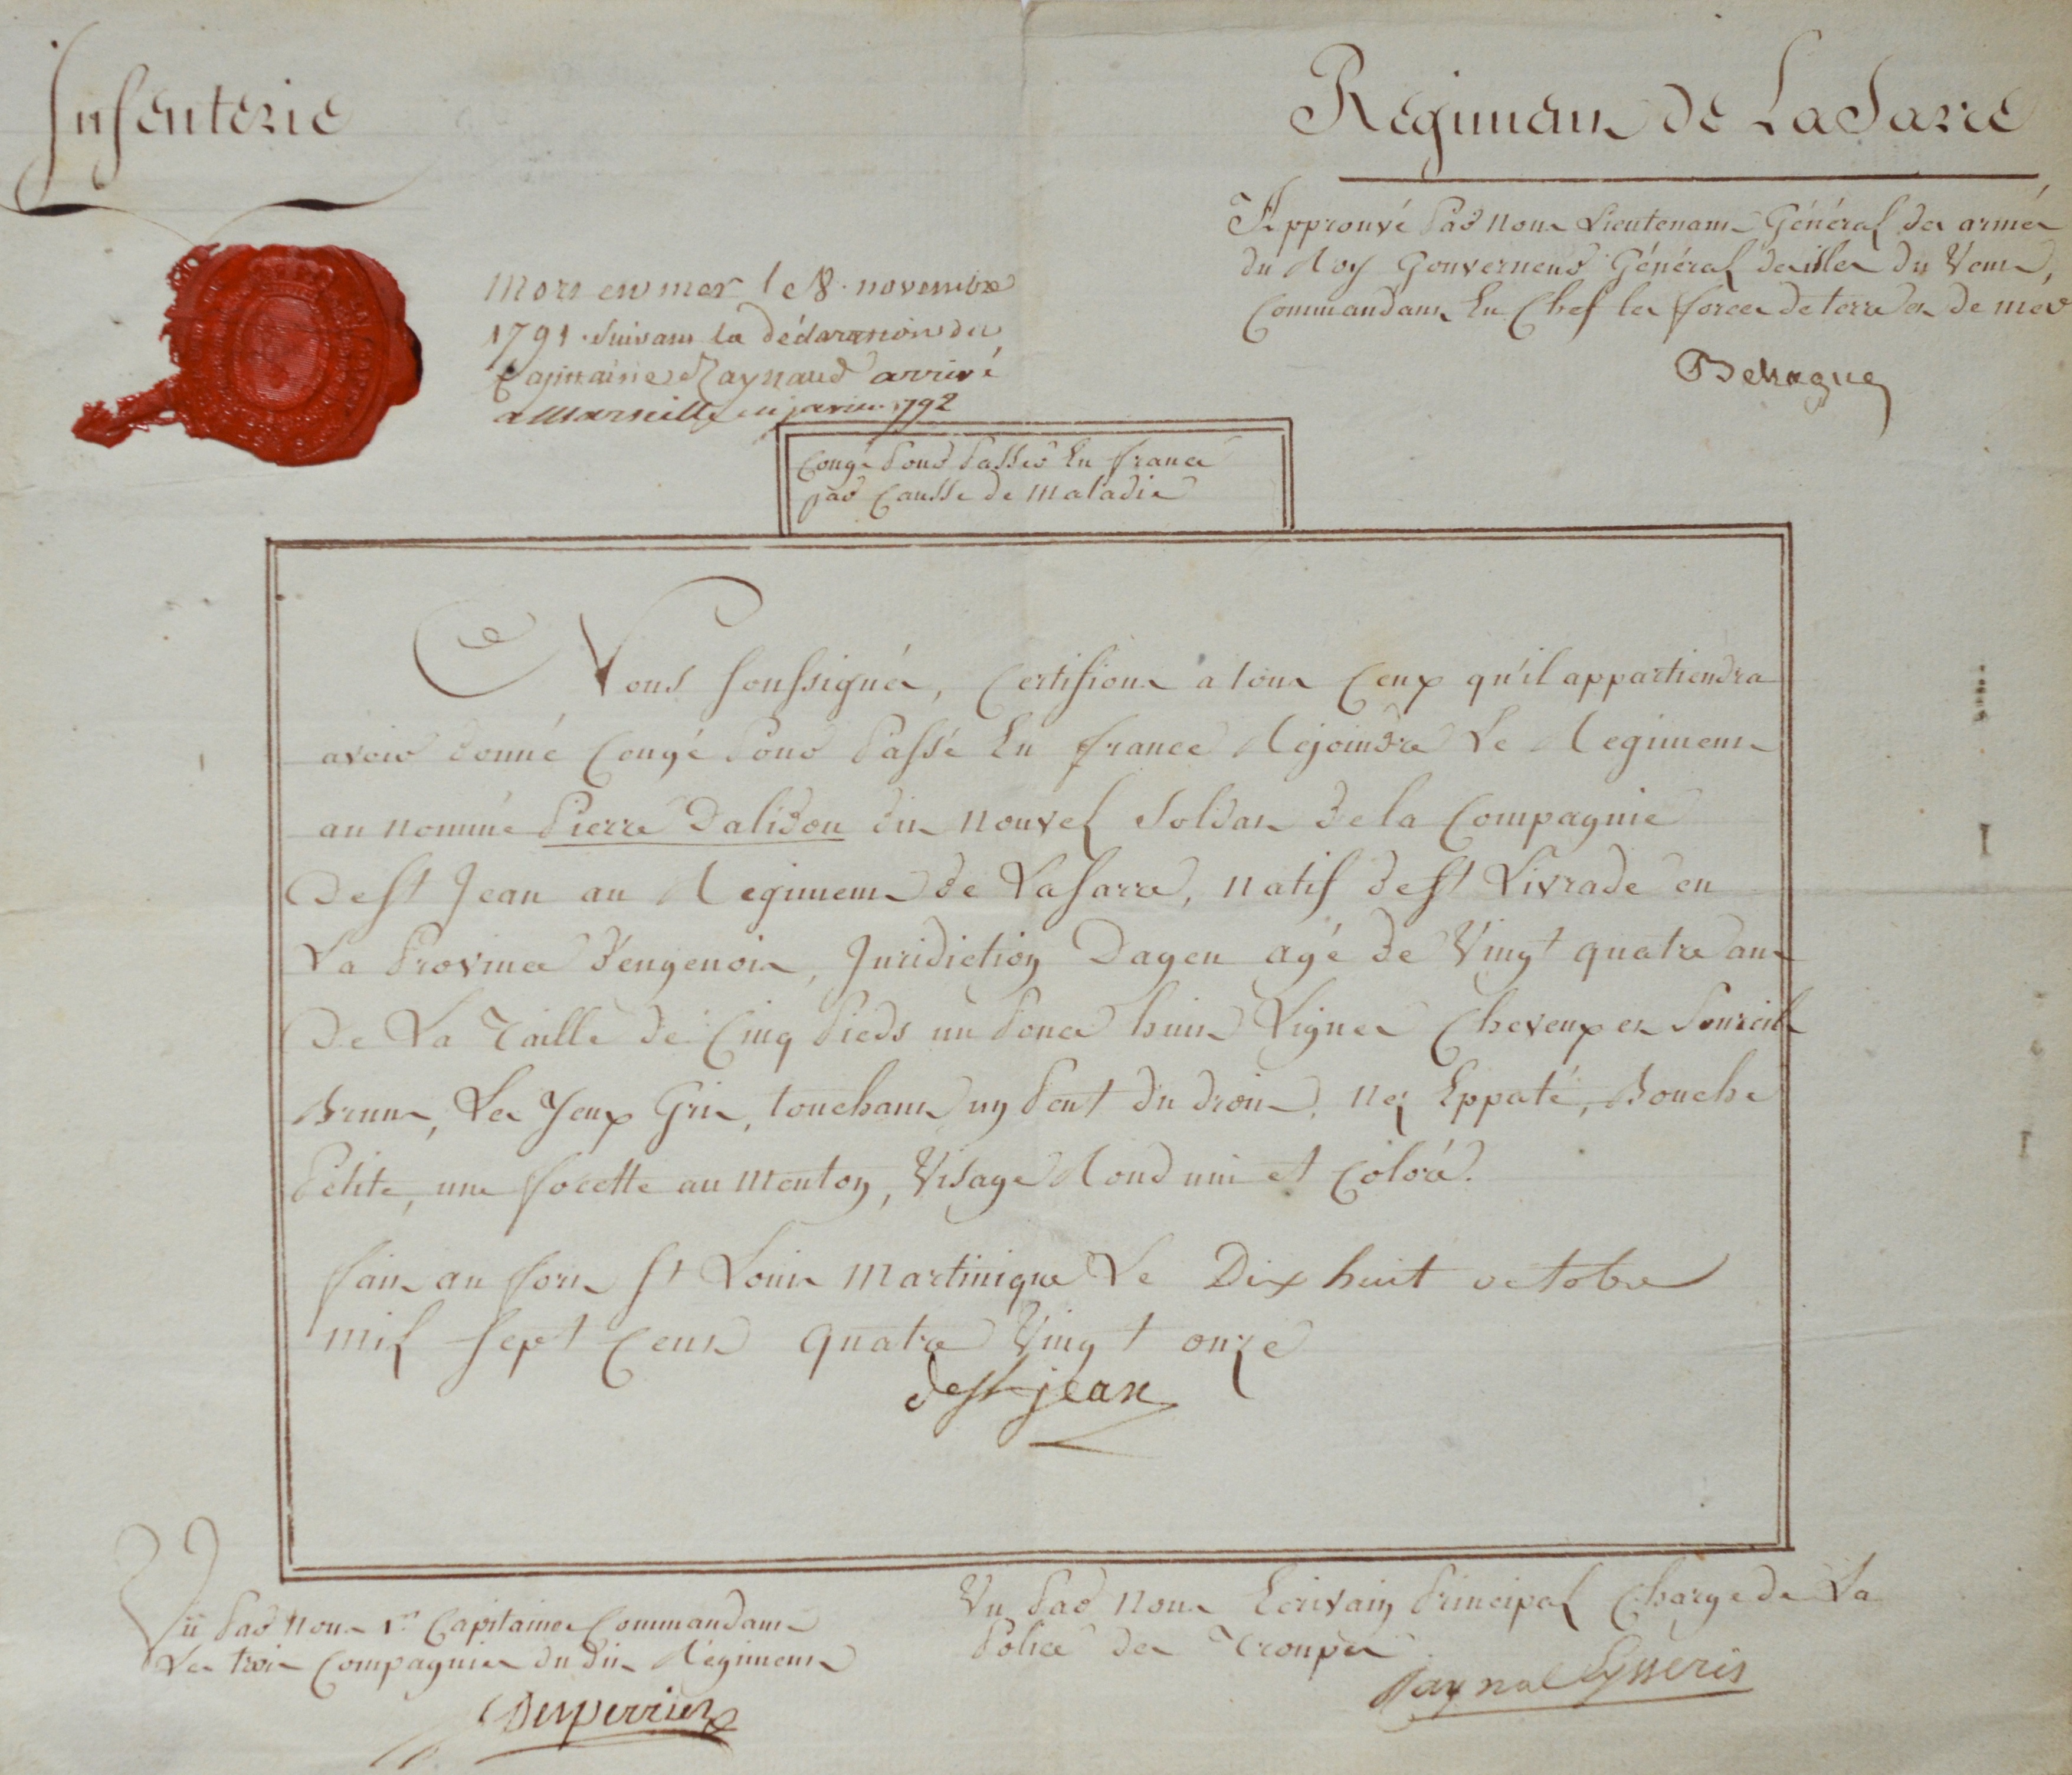 Infenterie
Regiment de La Sarre
Approuvé Par nous Lieutenant Général des armées
du Roy Gouverneur Général des isles du Vent,
Commandant En Chef les forces de terre et de mer
Behague
Mort en mer le 8. novembre
1791. suivant la déclaration du
Capitaine Raynaud arrivé
a Marseille en janvier 1792
Congé Pour Passer En france
par Causse de Maladie
Nous soussignés, Certifions a tous Ceux qu'il appartiendra
avoir donné Congé Pour Passé En france Rejoindre Le Regiment
au nommé Pierre Dalidou dit nouvel Soldat de la Compagnie
De St Jean au Regiment de La Sarre, natif de St Livrade en
La Province d'engenois, Juridiction Dagen agé de Vingt quatre ans
De La Taille de Cinq Pieds un Pouce huit Lignes Cheveux et Sourcils
Bruns, Les Yeux Gris, louchant un Peut du droit, Nez Eppaté, Bouche
Petite, une focette au Menton, Visage Rond uni et Coloré.
fait au fort St Louis Martinique Le Dix huit octobre
mil sept Cent quatre Vingt onze
de St jean
Vü Par Nous 1er Capitaine Commandant
Les trois Compagnies du dit Régiment
Desperriez
Vu Par Nous Ecrivain Principal Chargé de La
Police des Troupes
Raynal Eysseris